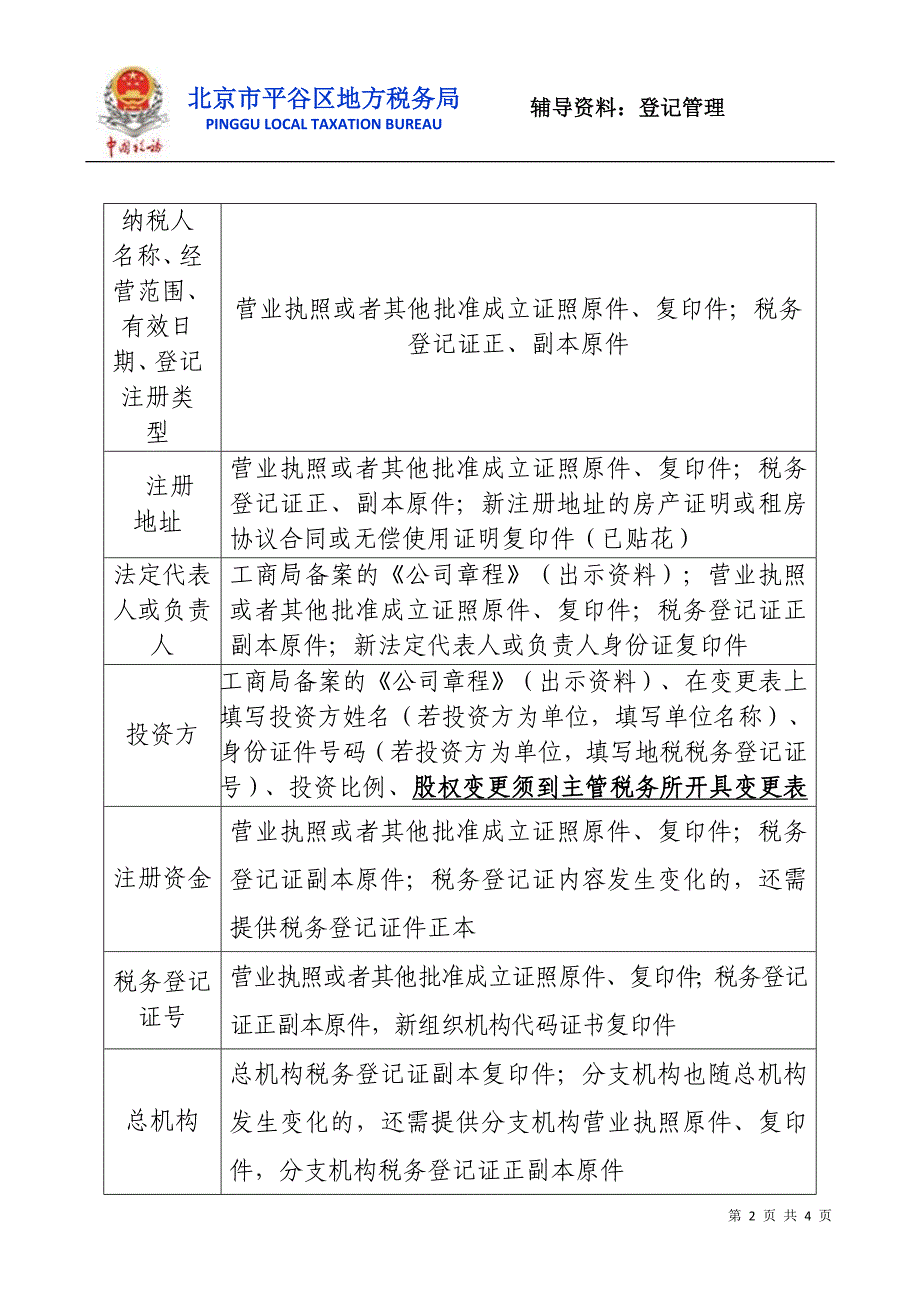 中国税务
北京市平谷区地方税务局
PINGGU LOCAL TAXATION BUREAU
辅导资料：登记管理
纳税人
名称、经
营范围、
有效日
期、登记
注册类
型
营业执照或者其他批准成立证照原件、复印件；税务
登记证正、副本原件
注册
地址
营业执照或者其他批准成立证照原件、复印件；税务
登记证正、副本原件；新注册地址的房产证明或租房
协议合同或无偿使用证明复印件（已贴花）
法定代表
人或负责
人
工商局备案的《公司章程》（出示资料）；营业执照
或者其他批准成立证照原件、复印件；税务登记证正
副本原件；新法定代表人或负责人身份证复印件
投资方
工商局备案的《公司章程》（出示资料）、在变更表上
填写投资方姓名（若投资方为单位，填写单位名称）、
身份证件号码（若投资方为单位，填写地税税务登记证
号）、投资比例、股权变更须到主管税务所开具变更表
注册资金
营业执照或者其他批准成立证照原件、复印件；税务
登记证副本原件；税务登记证内容发生变化的，还需
提供税务登记证件正本
税务登记
证号
营业执照或者其他批准成立证照原件、复印件；税务登记
证正副本原件，新组织机构代码证书复印件
总机构
总机构税务登记证副本复印件；分支机构也随总机构
发生变化的，还需提供分支机构营业执照原件、复印
件，分支机构税务登记证正副本原件
第 2 页 共 4 页